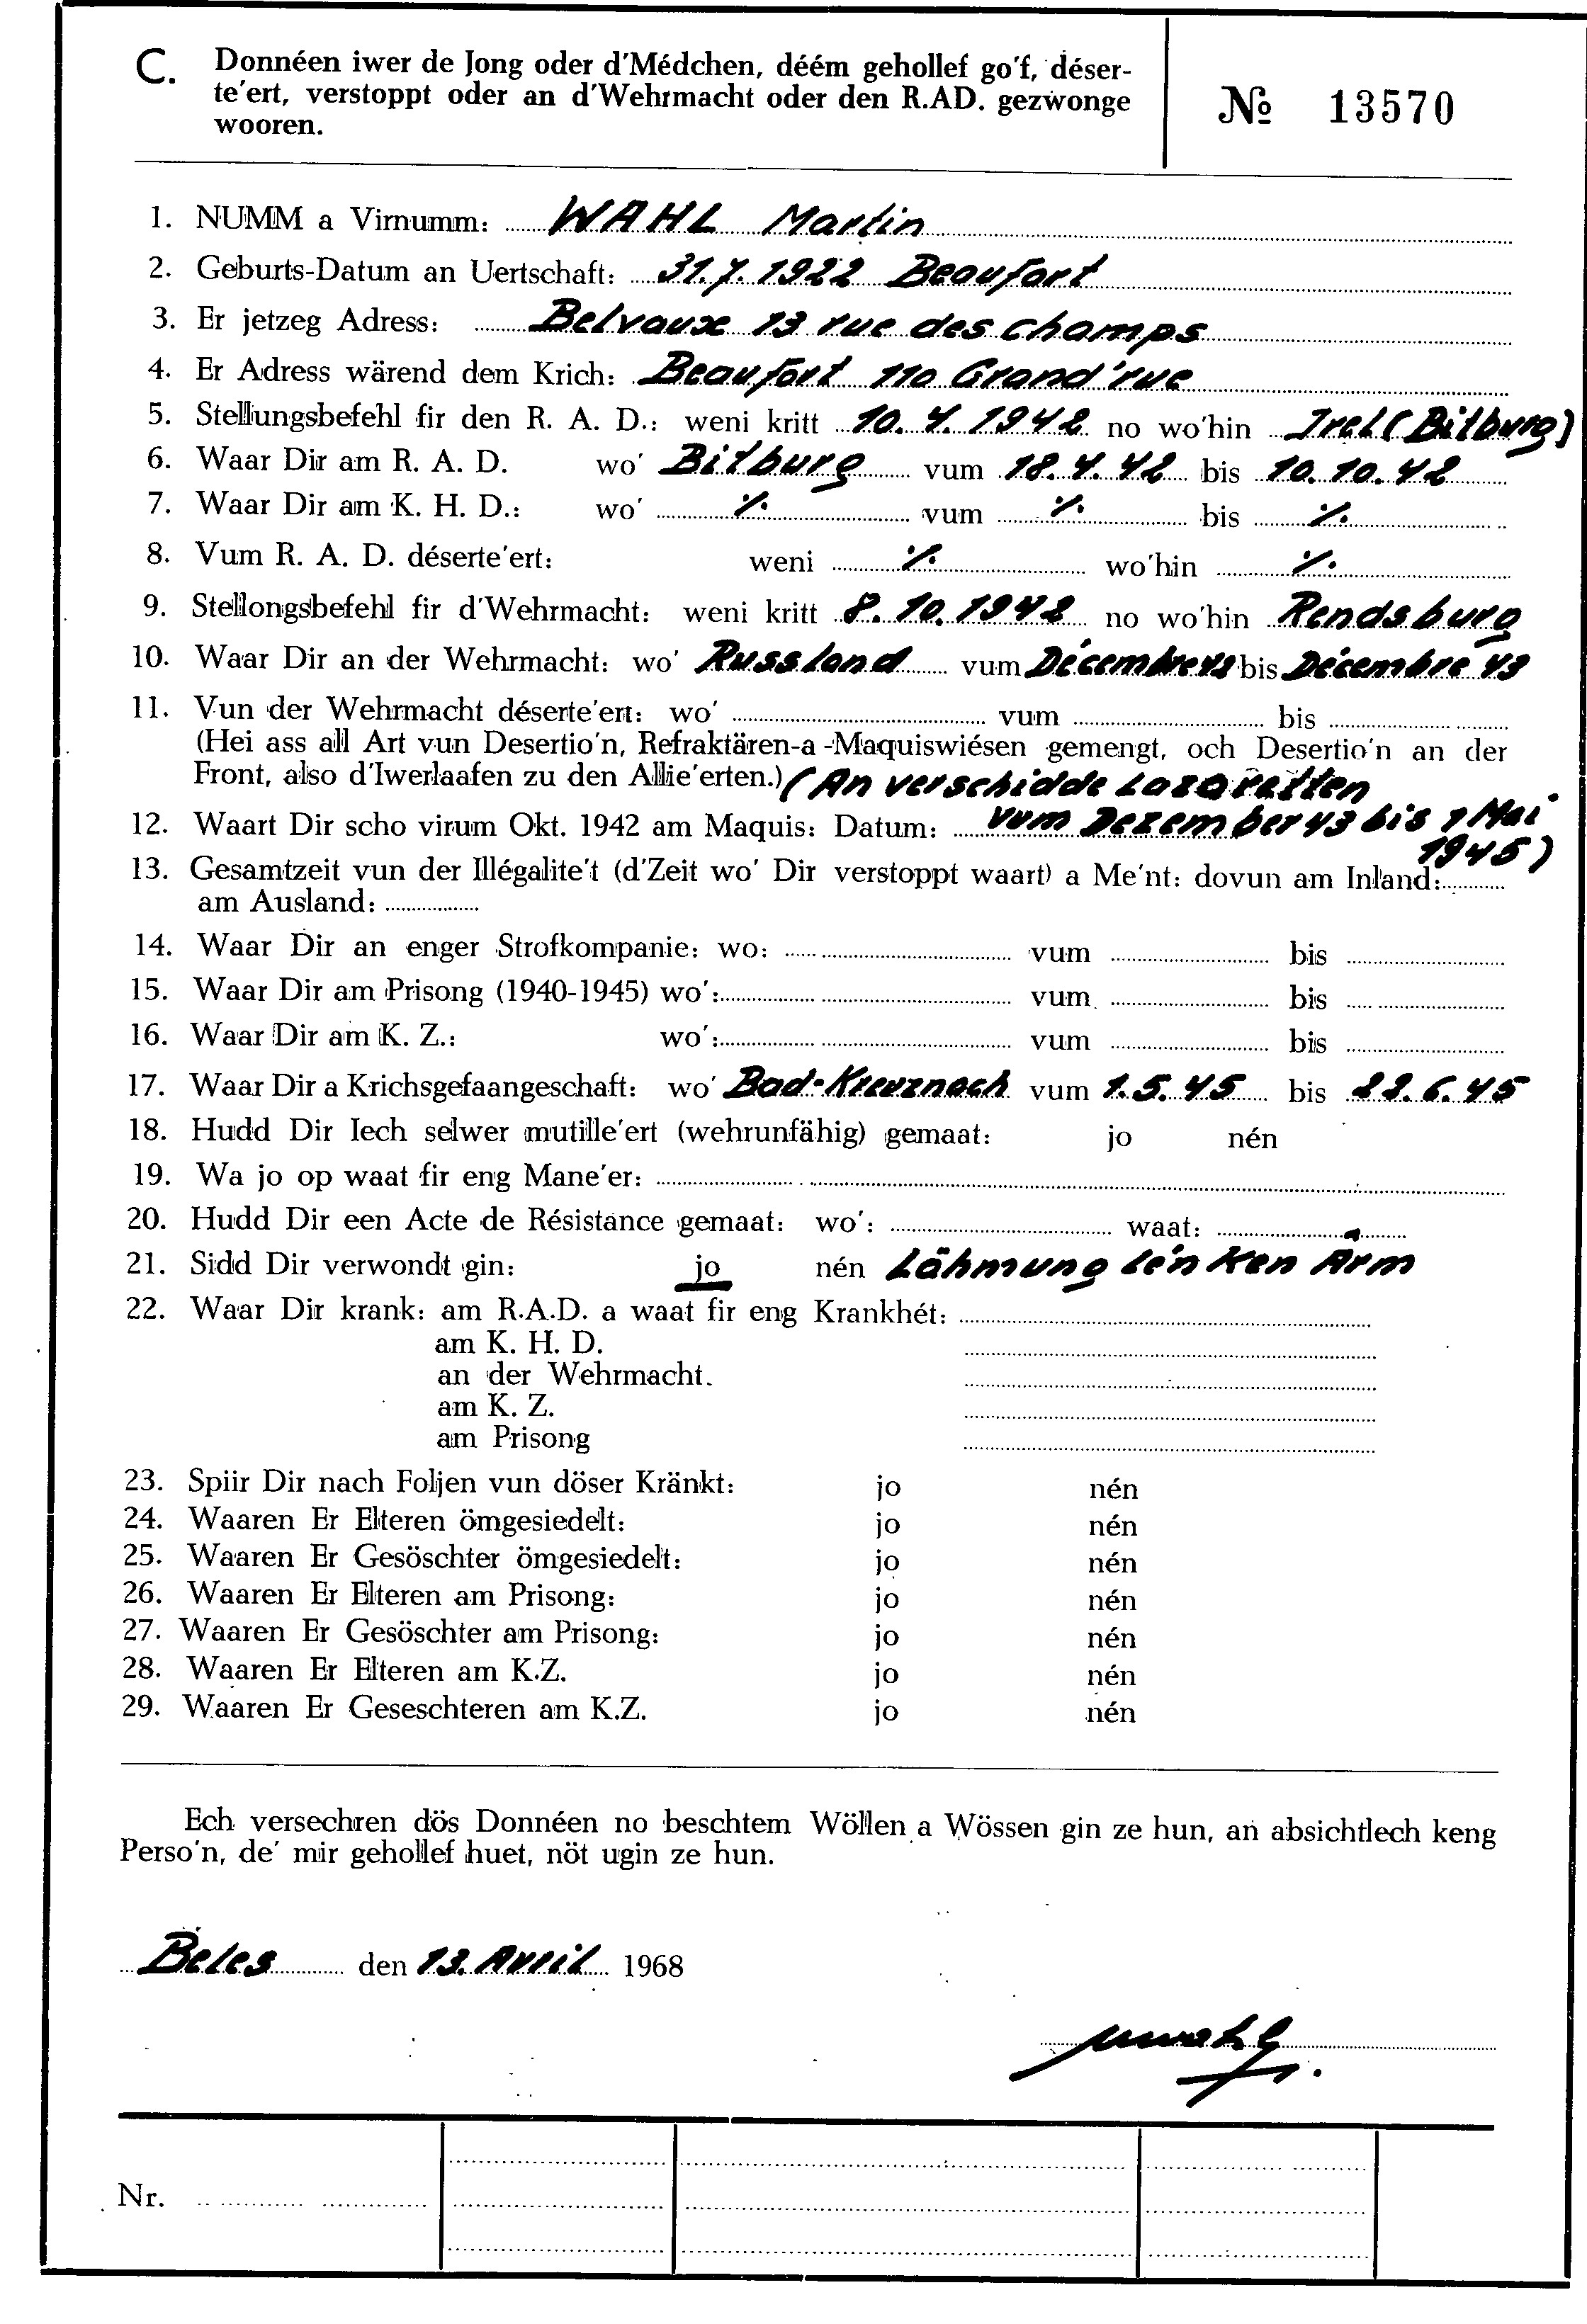 C. Donnéen iwer de Jong oder d'Médchen, déém gehollef go'f, déser-
te'ert, verstoppt oder an d'Wehrmacht oder den R.AD. gezwonge
wooren.
№ 13570
1. NUMM a Virnumm: WAHL Martin
2. Geburts-Datum an Uertschaft: 31.7.1922 Beaufort
3. Er jetzeg Adress: Belvaux 13 rue des champs
4. Er Adress wärend dem Krich: Beaufort 110 Grand'rue
5. Stellungsbefehl fir den R. A. D.: weni kritt 10.4.1942 no wo'hin Irel (Bitburg)
6. Waar Dir am R. A. D. wo' Bitburg vum 18.4.42 bis 10.10.42
7. Waar Dir am K. H. D.: wo' ·/. vum ·/. bis ·/.
8. Vum R. A. D. déserte'ert: weni ·/. wo'hin ·/.
9. Stellongsbefehl fir d'Wehrmacht: weni kritt 8.10.1942 no wo'hin Rendsburg
10. Waar Dir an der Wehrmacht: wo' Russland vum Décembre bis Décembre 43
11. Vun der Wehrmacht déserte'ert: wo' vum bis
(Hei ass all Art vun Desertio'n, Refraktären-a -Maquiswiésen gemengt, och Desertio'n an der
Front, also d'Iwerlaafen zu den Allie'erten.) (An verschidde Lazaretten
12. Waart Dir scho virum Okt. 1942 am Maquis: Datum: vum Dezember 43 bis 1 Mai
1945)
13. Gesamtzeit vun der Illégalite't (d'Zeit wo' Dir verstoppt waart) a Me'nt: dovun am Inland:
am Ausland:
14. Waar Dir an enger Strofkompanie: wo: vum bis
15. Waar Dir am Prisong (1940-1945) wo': vum bis
16. Waar Dir am K. Z.: wo': vum bis
17. Waar Dir a Krichsgefaangeschaft: wo' Bad-Kreuznach vum 1.5.45 bis 22.6.45
18. Hudd Dir Iech selwer mutille'ert (wehrunfähig) gemaat: jo nén
19. Wa jo op waat fir eng Mane'er:
20. Hudd Dir een Acte de Résistance gemaat: wo': waat:
21. Sidd Dir verwondt gin: jo nén Lähmung le'nken Arm
22. Waar Dir krank: am R.A.D. a waat fir eng Krankhét:
am K. H. D.
an der Wehrmacht.
am K. Z.
am Prisong
23. Spiir Dir nach Foljen vun döser Kränkt: jo nén
24. Waaren Er Elteren ömgesiedelt: jo nén
25. Waaren Er Gesöschter ömgesiedelt: jo nén
26. Waaren Er Elteren am Prisong: jo nén
27. Waaren Er Gesöschter am Prisong: jo nén
28. Waaren Er Elteren am K.Z. jo nén
29. Waaren Er Geseschteren am K.Z. jo nén
Ech versechren dös Donnéen no beschtem Wöllen a Wössen gin ze hun, an absichtlech keng
Perso'n, de' mir gehollef huet, nöt ugin ze hun.
Beles den 13. Avril 1968
Mwahl
Nr.